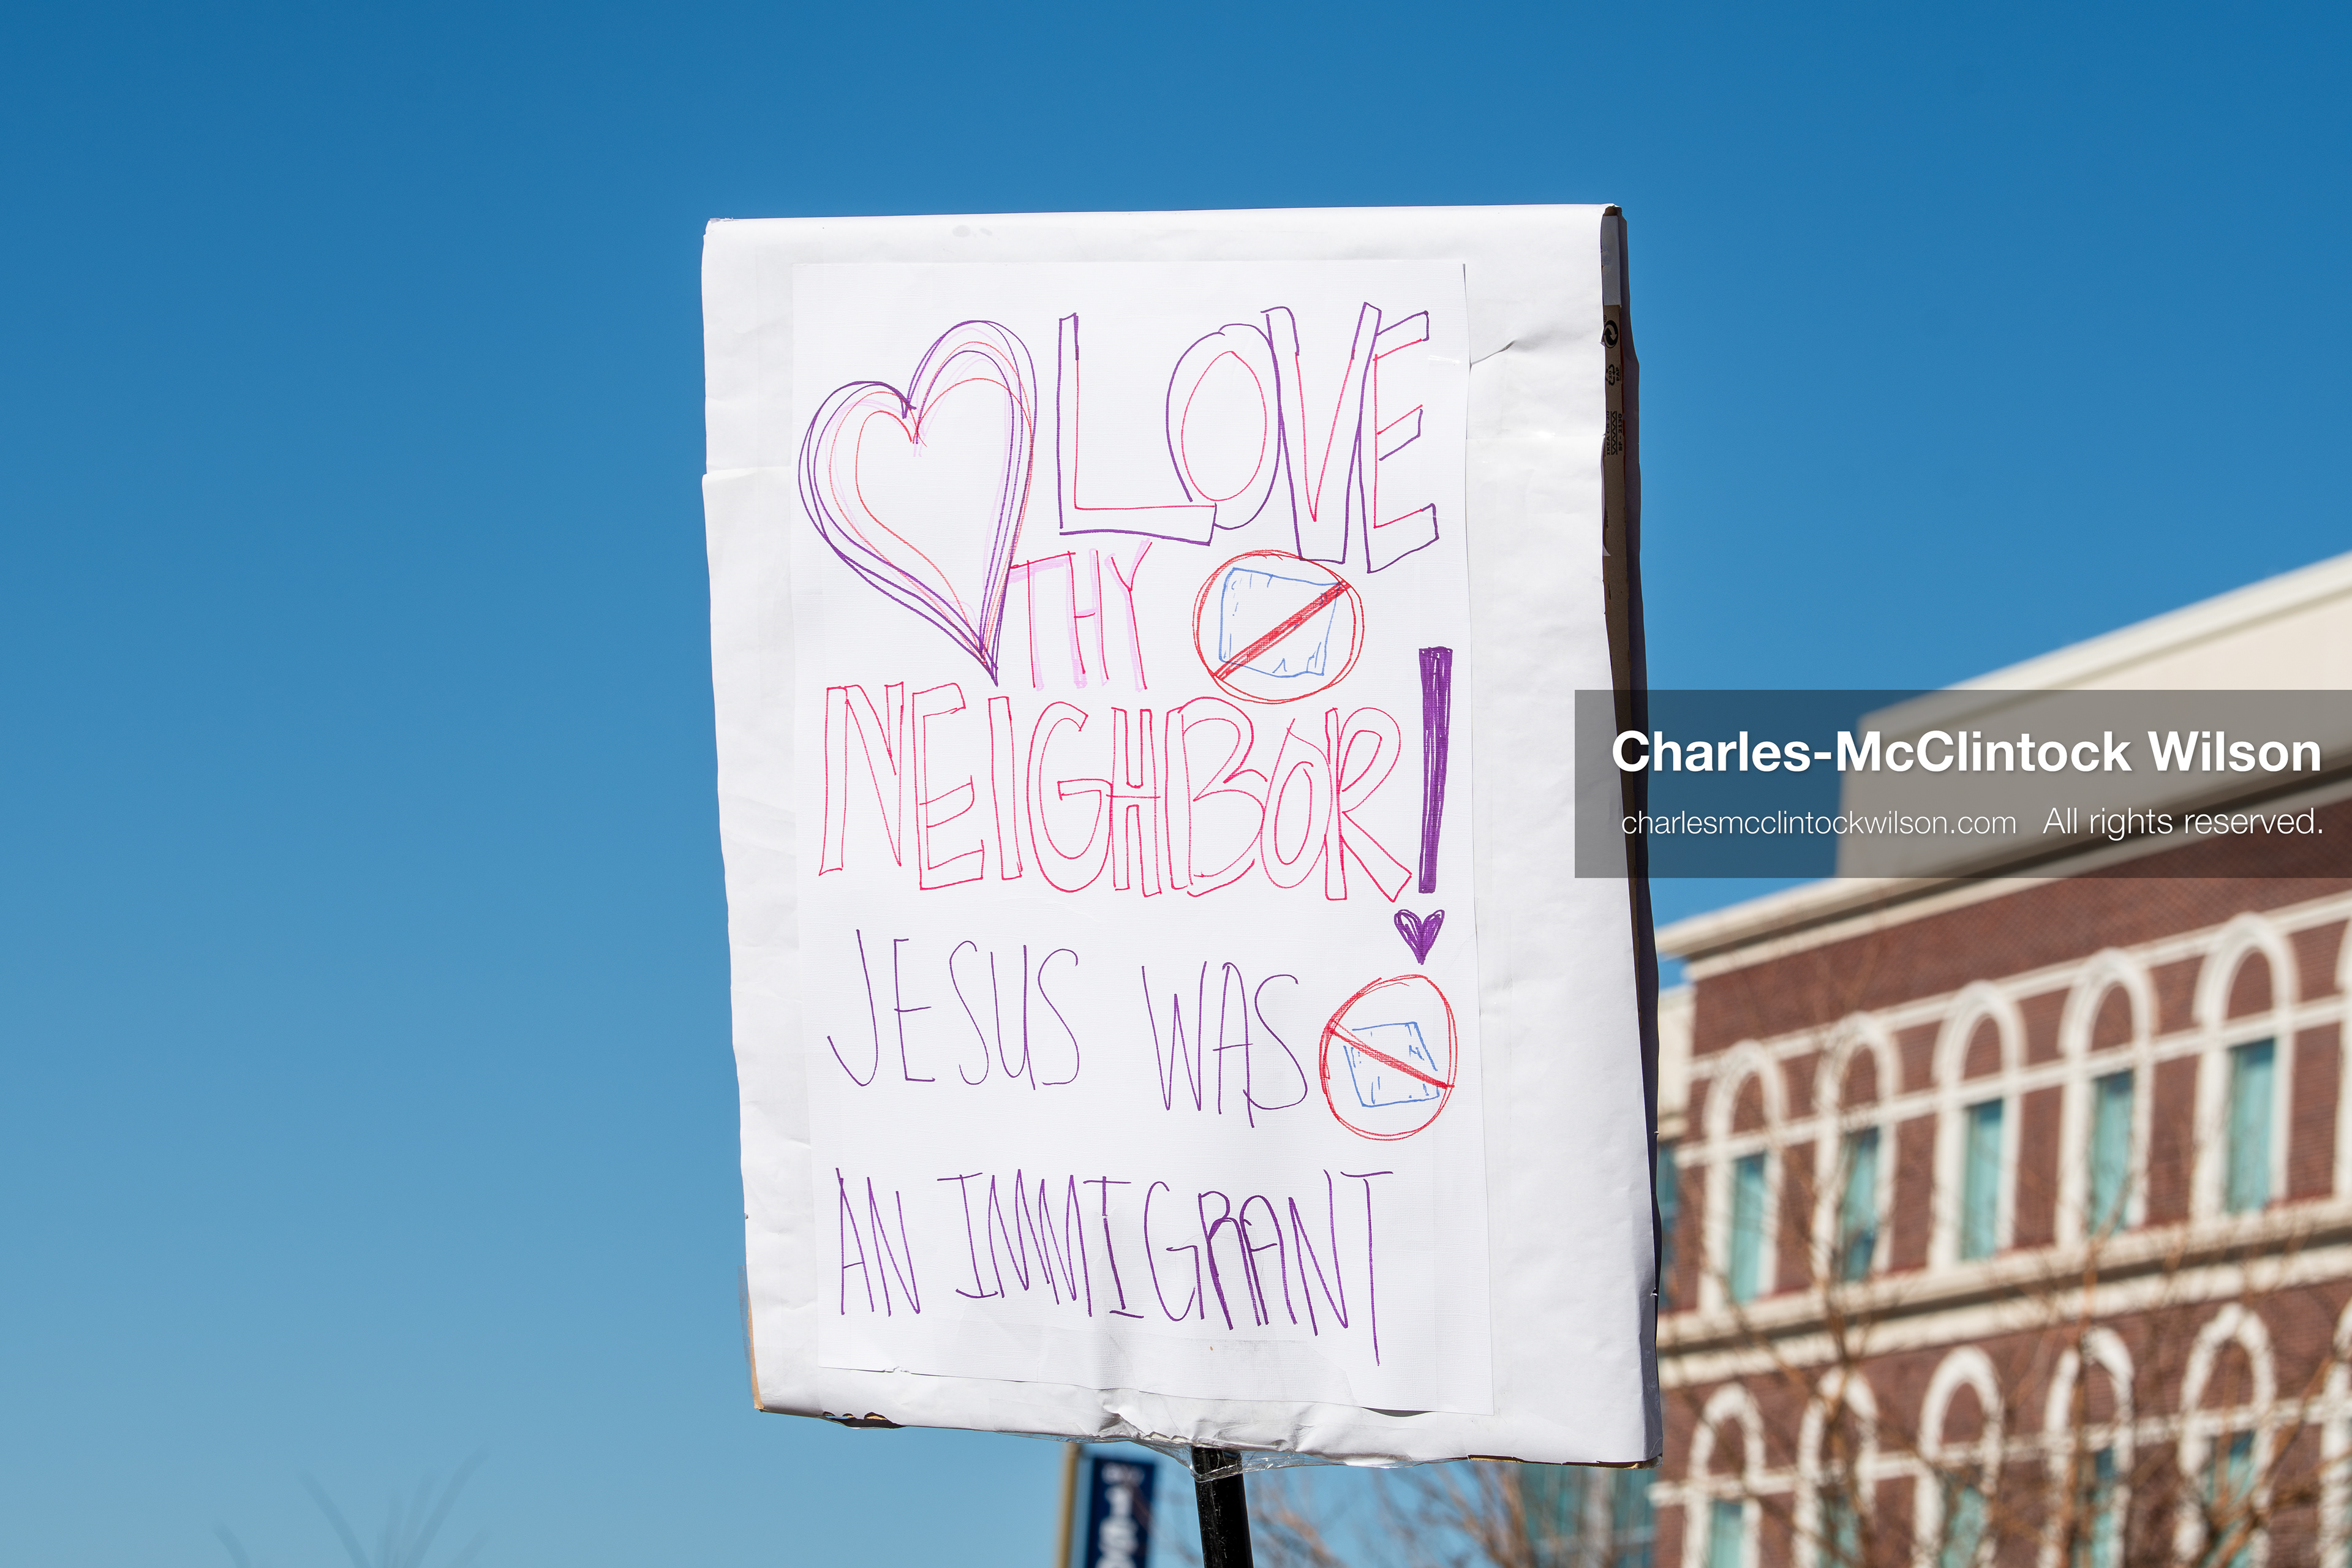 LOVE
THY
NEIGHBOR!
JESUS WAS
AN IMMIGRANT
Charles-McClintock Wilson
charlesmcclintockwilson.com All rights reserved.